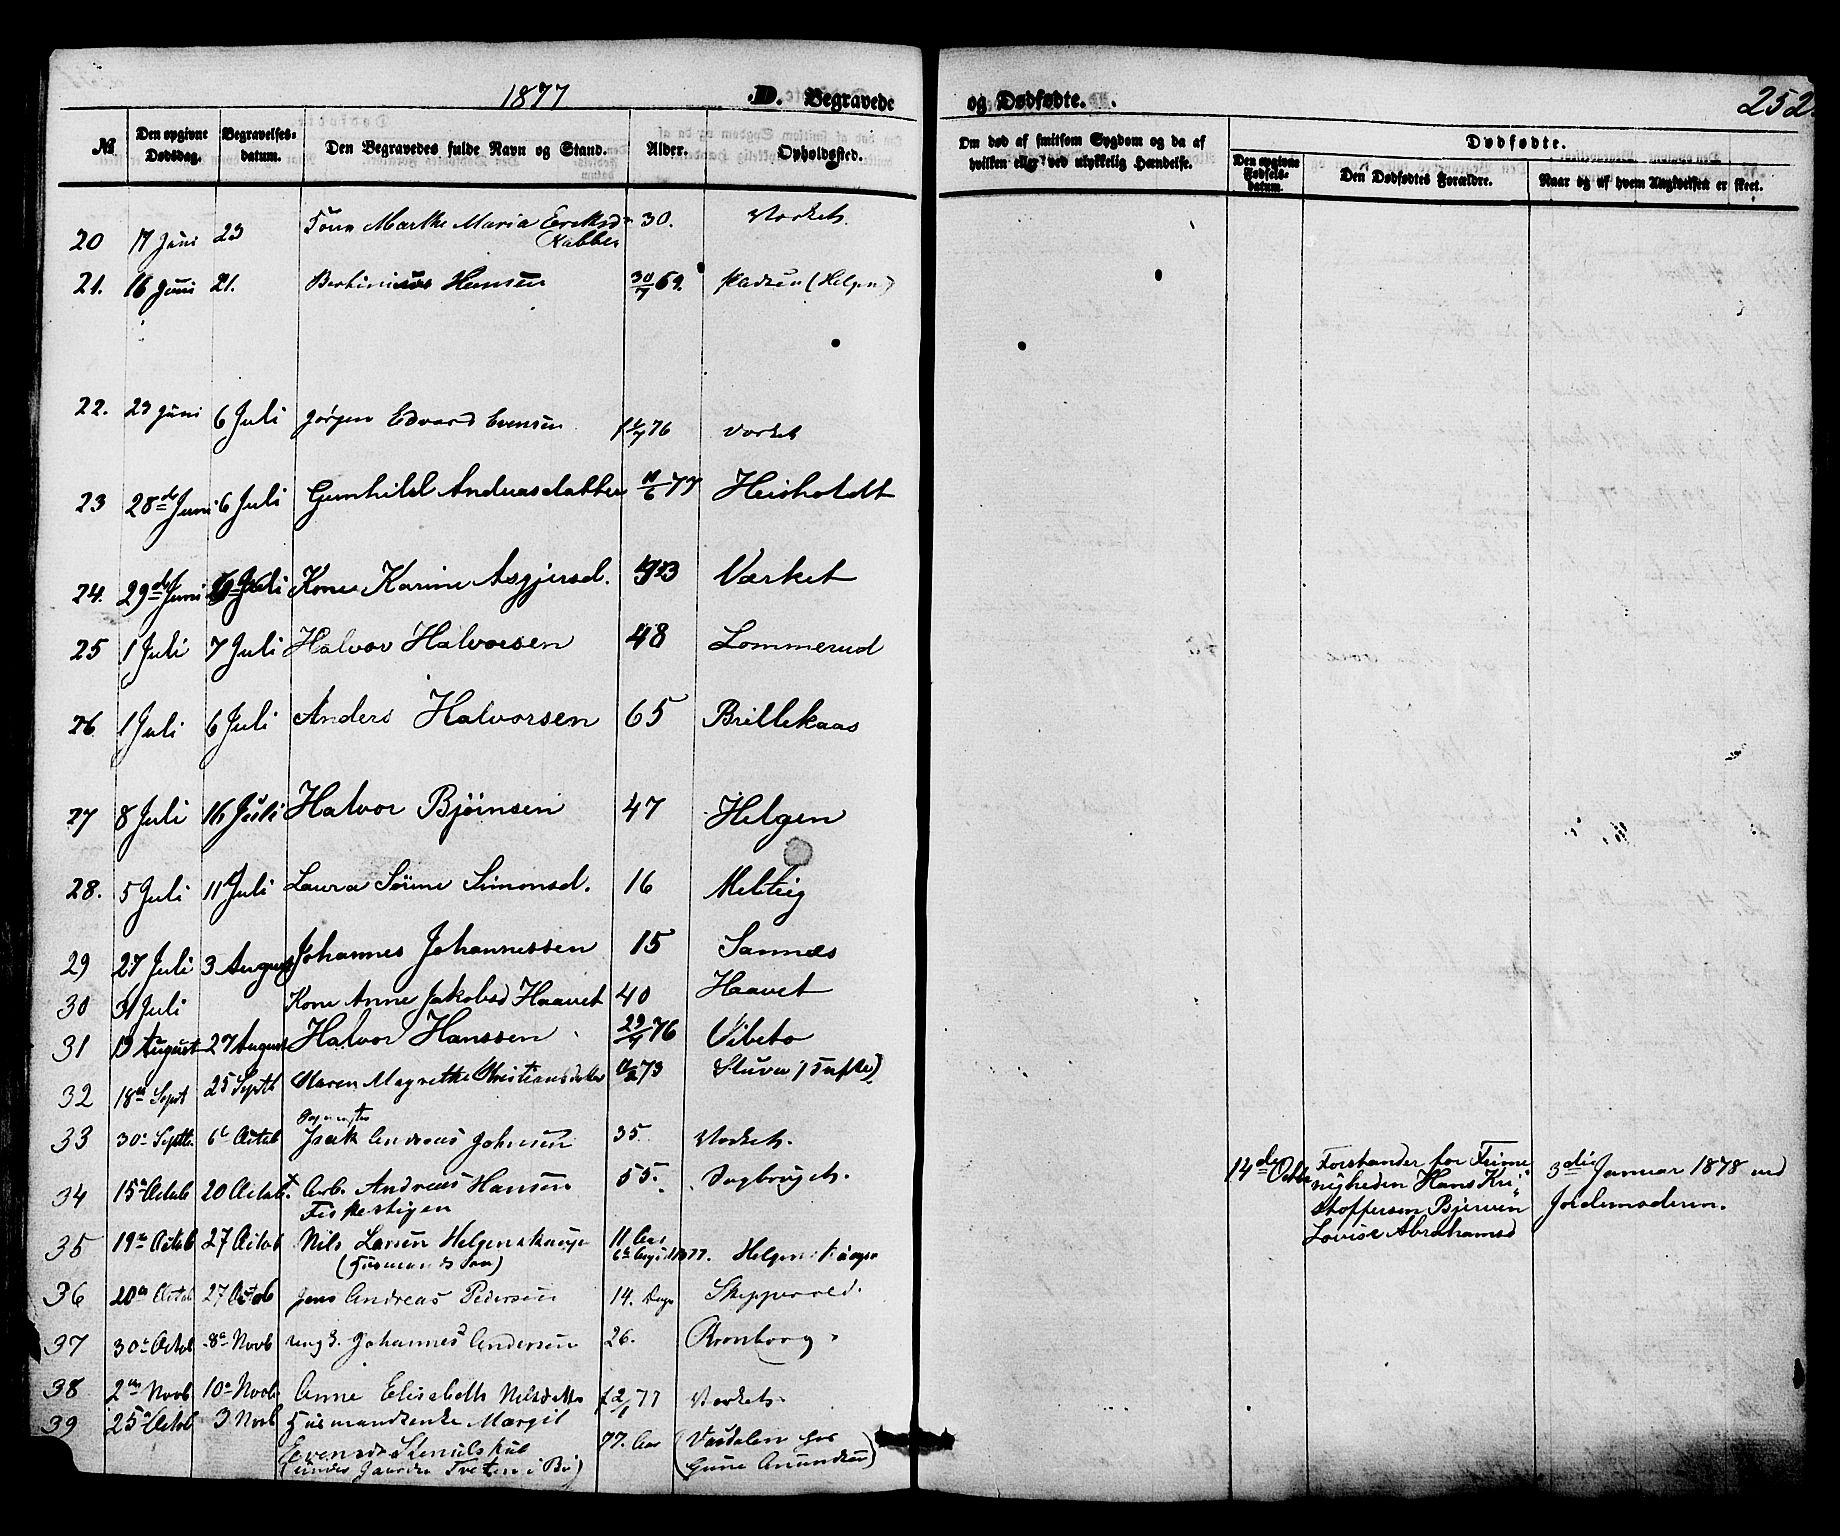 1877
D. Begravede
og Dødfødte.
252
№
Den opgivne Dødsdag.
Begravelses-datum.
Den Begravedes fulde Navn og Stand.
Alder.
Opholdssted.
Om død af smitsom Sygdom og da af hvilken eller ved ulykkelig Hændelse.
Dødfødte.
Den opgivne Fødsels-datum.
Den Dødfødtes Forældre.
Naar og af hvem Angivelsen er skeet.
20 17 Juni 23 Marthe Maria Eriksd 30. Værket.
21. 16 Juni 21. Hansen 30/7 69. (Helgen)
22. 23 Juni 6 Juli Jørgen Edvard Evensen 76 Værket
23 28de Juni 6 Juli Gunhild Andreasdatter 11/6 77 Heisholdt
24. 29de Juni Juli Kone Karine Asgjersd. Værket
25 1 Juli 7 Juli Halvor Halvorsen 48 Lommerud
26. 1 Juli 6 Juli Anders Halvorsen 65 Brillekaas
27 8 Juli 16 Juli Halvor Bjørnsen 47 Helgen
28. 5 Juli 11 Juli Laura Sørine Simonsd. 16 Melteig
29 27 Juli 3 August Johannes Johannessen 15 Sannæs
30 31 Juli Kone Anne Jakobsd Haavet 40 Haavet
31 19 August 27 August Halvor Hanssen 29/4 76 Vibeto
32 18de Sept 25 Septb Maren Magrethe Christiansdatter 73 Stuva (Tufte)
33 30e Septb. 6e Octob Isak Andreas Johnsen 35. Værket.
34 15e Octob 20 Octob. Arb. Andreas Hansen 55. Sagbruget.
Fiskestigen
35 19e Octob 27 Octob Nils Larsen Helgenshauge 11 Aar
(Husmands Søn) 6te 1877. Helgenshauge
36 20de Octob 27 Octob Jens Andreas Pedersen 14. Dage Skippervold.
37 30e Octob 8e Novb ungk. Johannes Andersen 26. Kronborg
38 2den Novb 10e Novb Anne Elisabeth Nilsdatter 77 Værket
39 25e Octob 3 Novb Husmandsenke Margit
Evensdt 77. Aar (Vasdalen hos
(under Gaarden Tveten i Bø) Gune Amundsen)
14de Octbr Forstander for Frime
nigheden Hans Kri
stoffersen Bjerven
Lovise Abrahamsd
3die Januar 1878 ved
Jordemoderen.